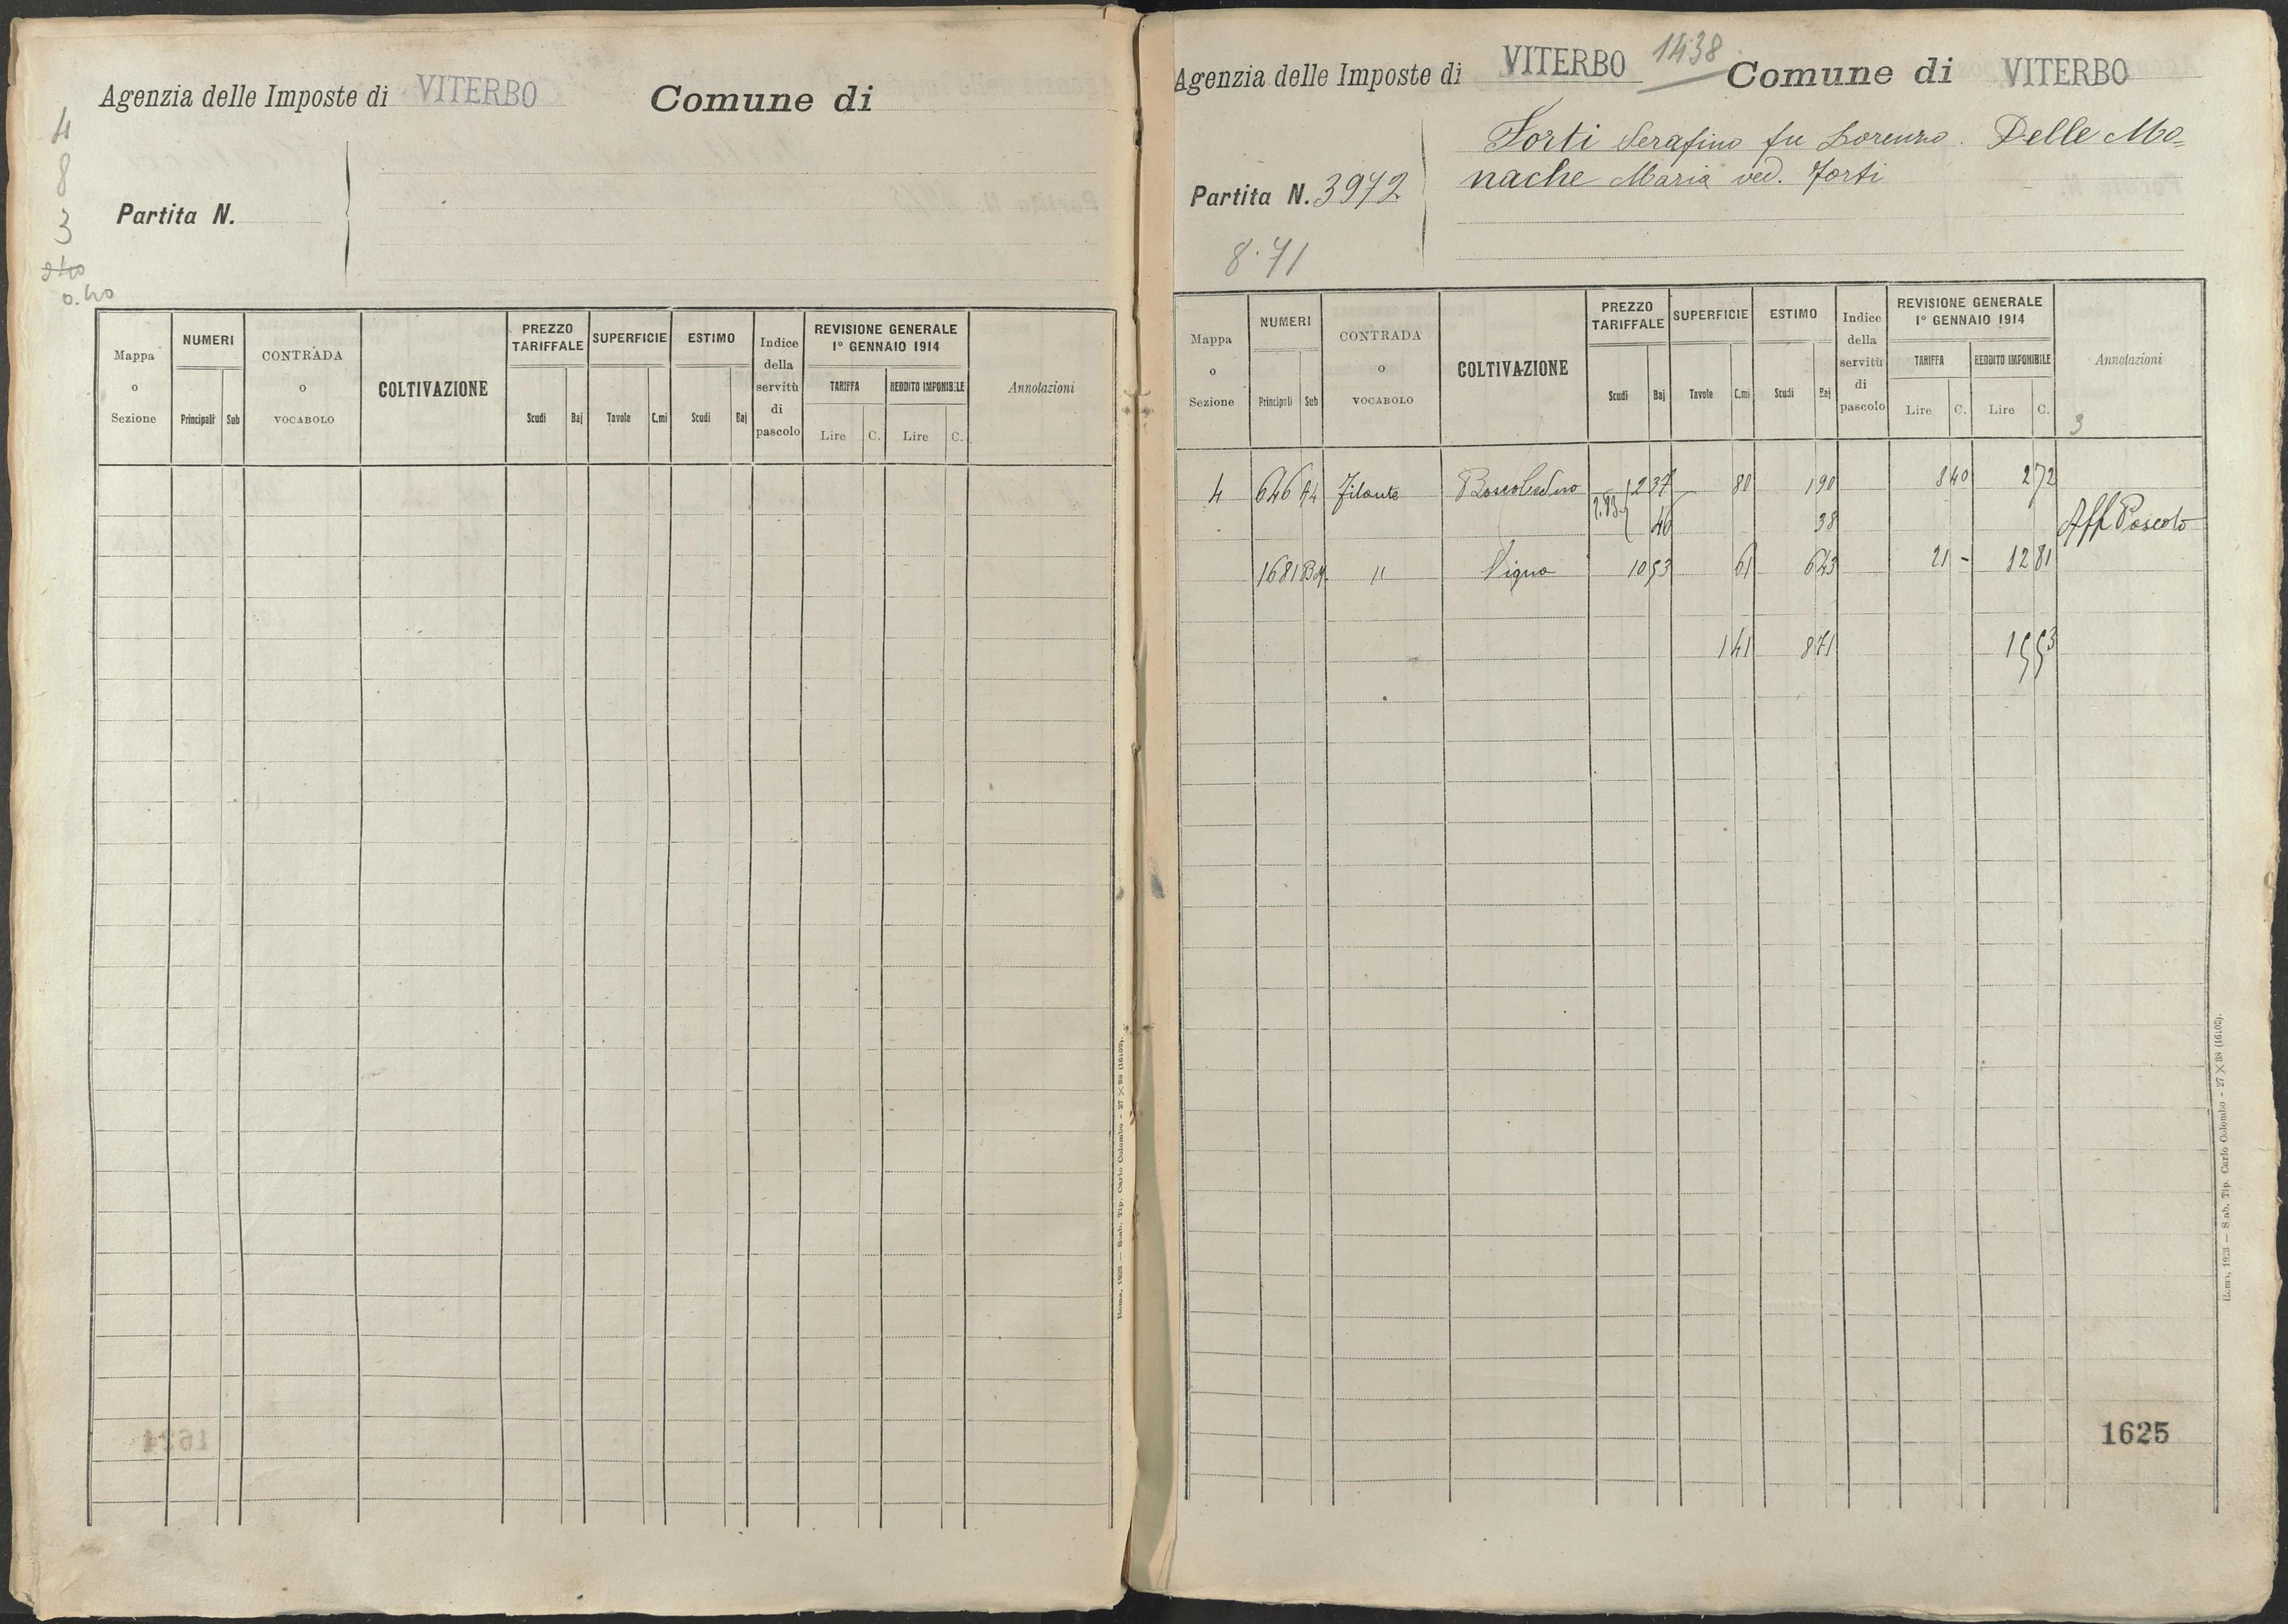 Agenzia delle Imposte di VITERBO Comune di
4
8
3
Partita N.
0.40
Mappa o Sezione
NUMERI
Principali Sub
CONTRADA o VOCABOLO
COLTIVAZIONE
PREZZO TARIFFALE
Scudi Baj
SUPERFICIE
Tavole C.mi
ESTIMO
Scudi Baj
Indice della servitù di pascolo
REVISIONE GENERALE
1º GENNAIO 1914
TARIFFA
Lire C.
REDDITO IMPONIBILE
Lire C.
Annotazioni
Roma, 1923 — Stab. Tip. Carlo Colombo - 27 × 38 (16102).
Agenzia delle Imposte di VITERBO 1438 Comune di VITERBO
Forti Serafino fu Lorenzo. Delle Mo=
Partita N. 3972 nache Maria ved. Forti
8.71
Mappa o Sezione
NUMERI
Principali Sub
CONTRADA o VOCABOLO
COLTIVAZIONE
PREZZO TARIFFALE
Scudi Baj
SUPERFICIE
Tavole C.mi
ESTIMO
Scudi Baj
Indice della servitù di pascolo
REVISIONE GENERALE
1º GENNAIO 1914
TARIFFA
Lire C.
REDDITO IMPONIBILE
Lire C.
Annotazioni
3
4 646 Filante 2 37 80 1 90 8 40 2 72
2.83 46 38 Aff Pascolo
1681 " Vigna 10 53 61 6 43 21 - 12 81
1 41 8 71 15 53
1625
Roma, 1923 — Stab. Tip. Carlo Colombo - 27 × 38 (16102).